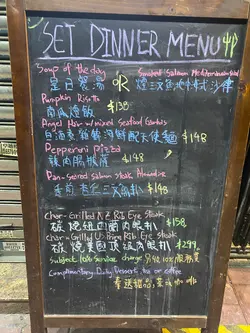 SET DINNER MENU
Soup of the day OR Smoked Salmon Mediterranean Salad
是日餐湯
Pumpkin Risotto
南瓜燴飯 $138
Angel Hair w/mixed Seafood Garlics
天使麵 $148
Pepperoni Pizza
辣肉腸披薩 $148
Pan-seared salmon steak
$148
Char-Grilled NZ Rib Eye Steak
炭燒紐西蘭肉眼扒 $158
Char-Grilled US Prime Rib Eye Steak
炭燒美國頂級肉眼扒 $299
Subject 10% Service charge 另收10%服務費
Complimentary Daily Dessert, tea or coffee
奉送甜品, 茶或咖啡